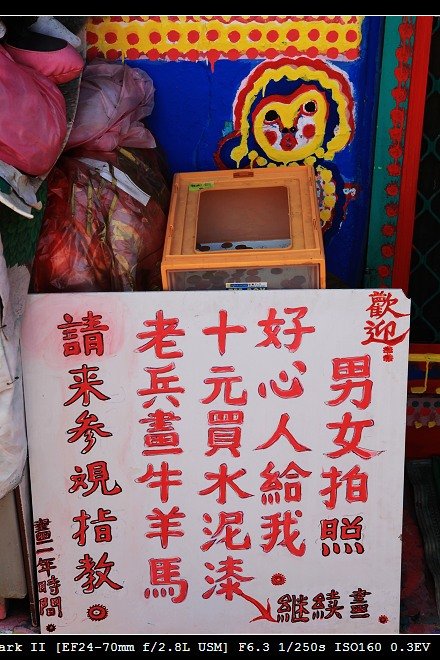 歡迎
男女拍照
好心人給我
十元買水泥漆
繼續畫
老兵畫牛羊馬
請来参覌指教
畫一年時間
ark II [EF24-70mm f/2.8L USM] F6.3 1/250s ISO160 0.3EV